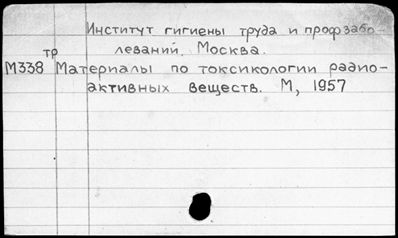 Институт гигиены труда и профзабо-
леваний, Москва.
тр
М338 Материалы по токсикологии радио-
активных веществ. М, 1957